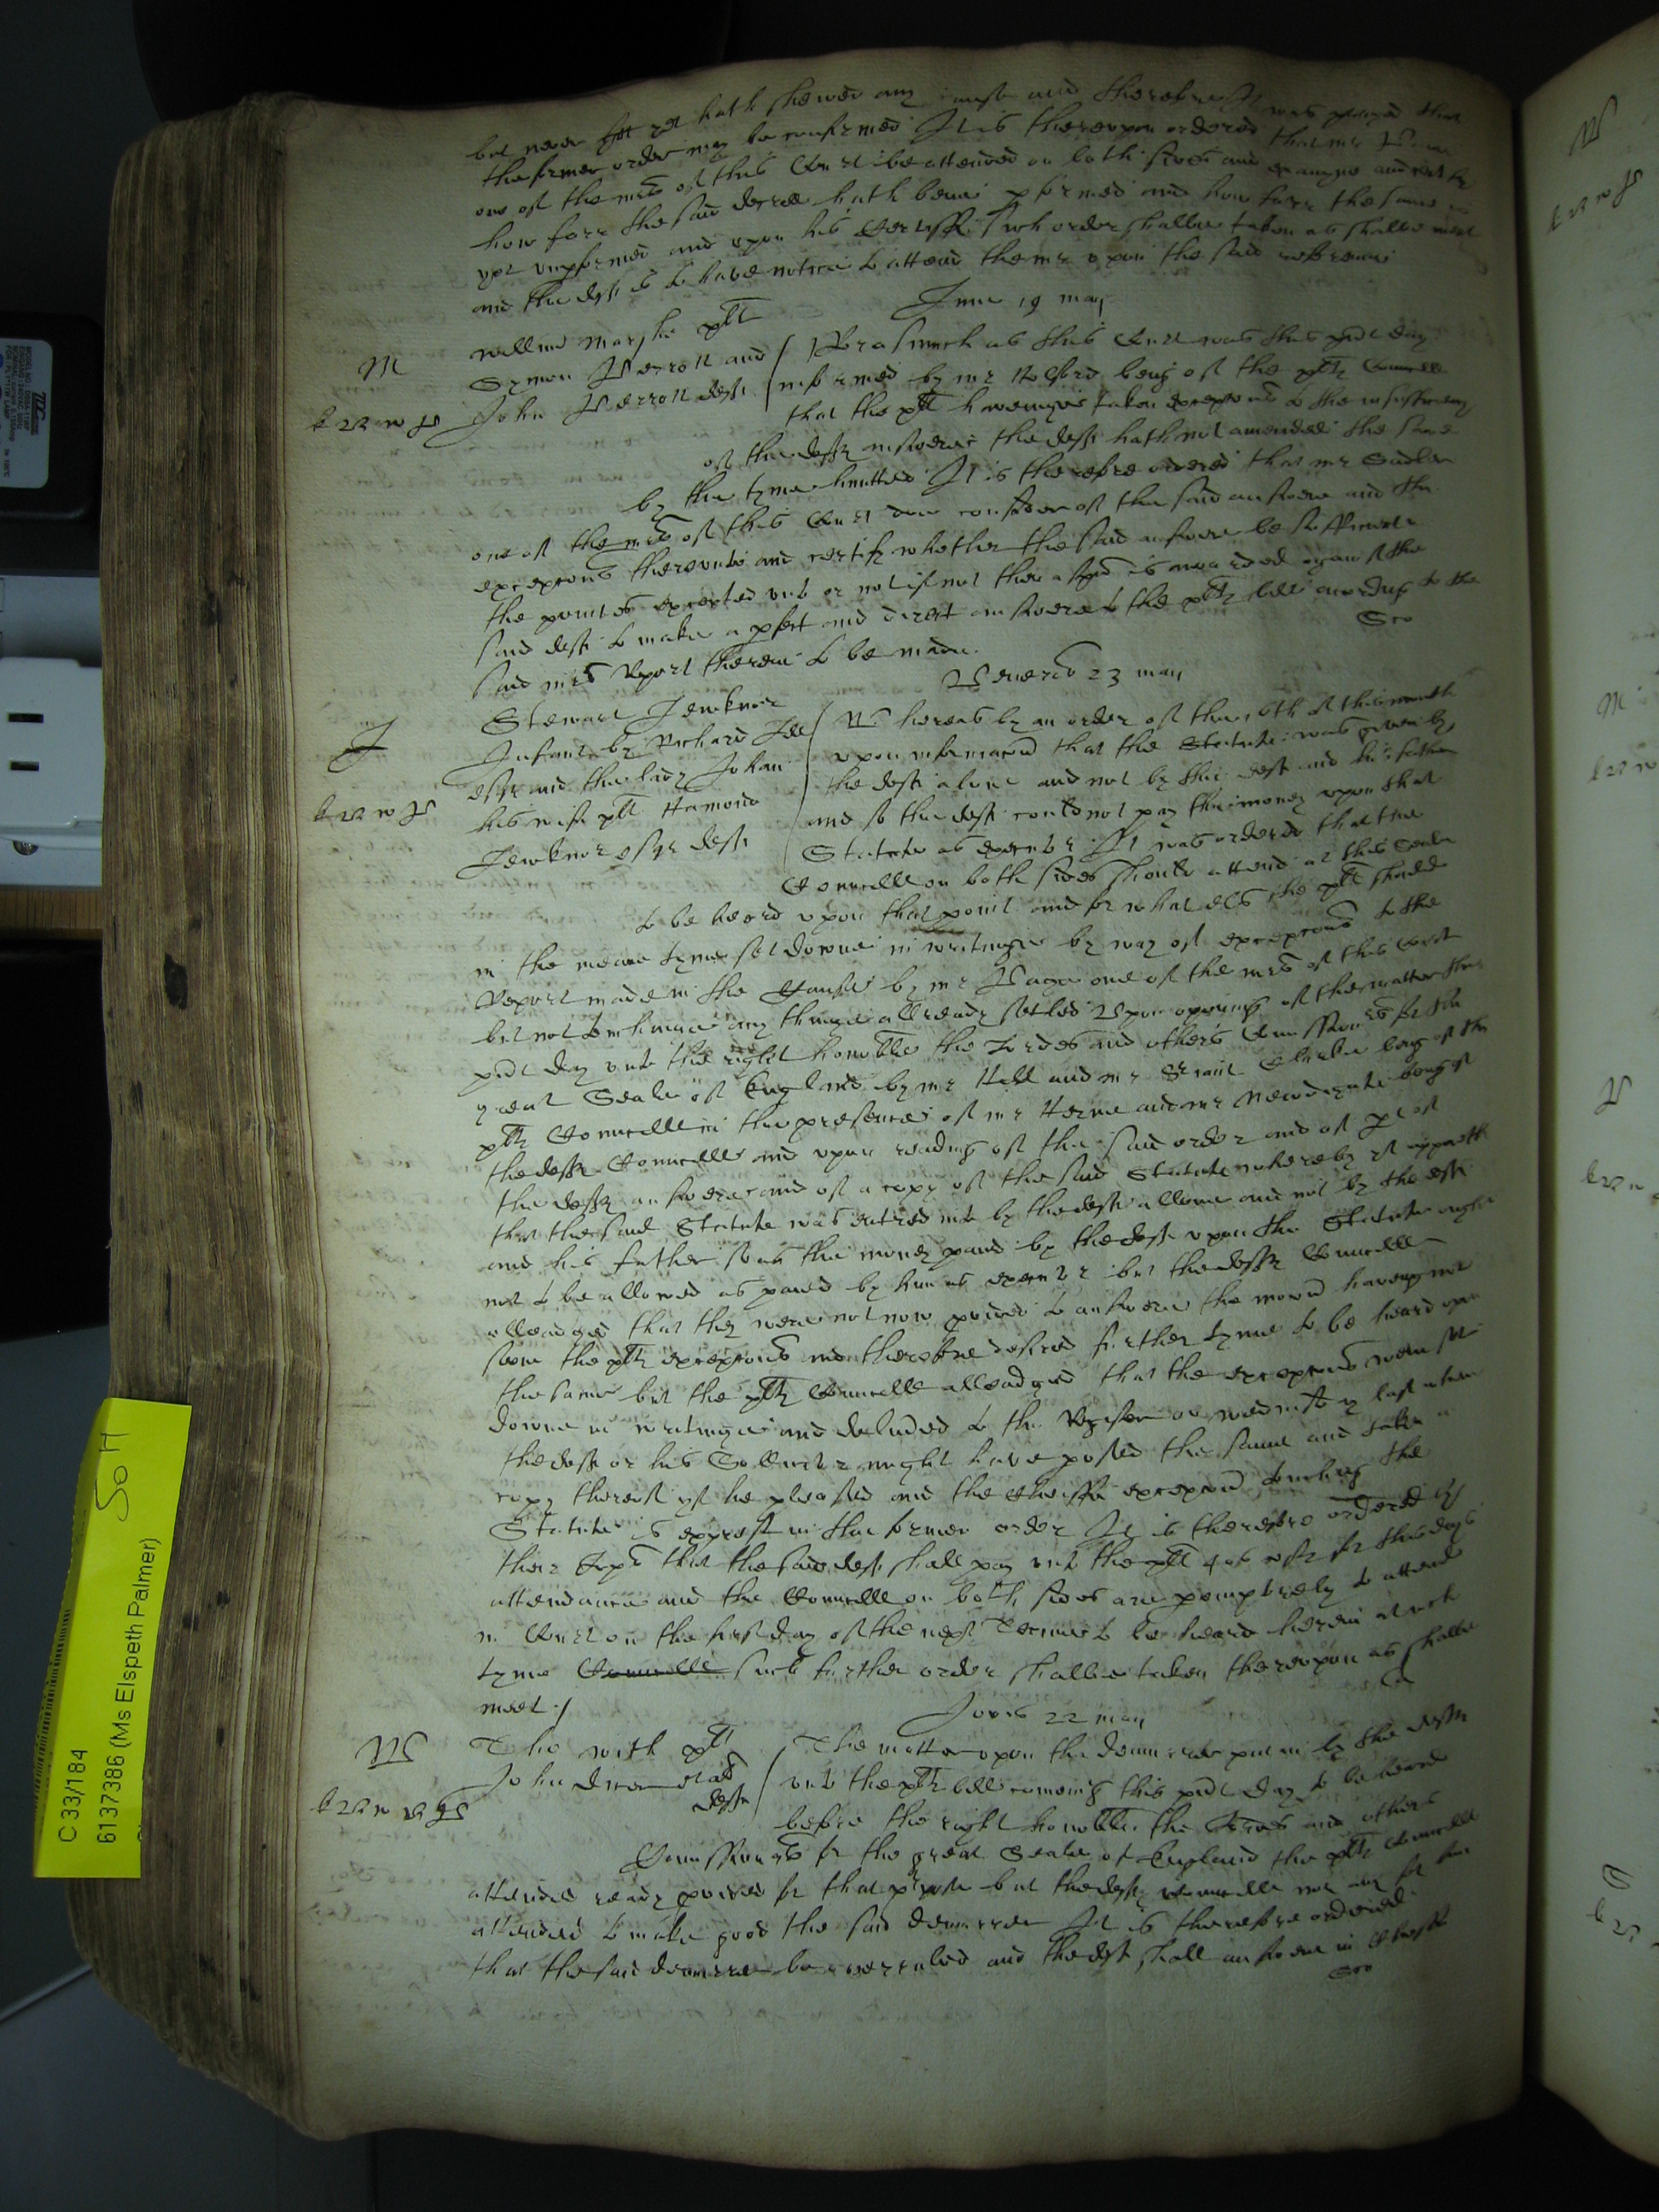 but never yet hath shewed any cause and therefore It was prayed that
the former order may be confirmed It is therevpon ordered that mr Page
one of the mrs of this Court be attended on both sides and examyne and certify
how farr the said decree hath bene pformed and how farr the same is
yet vnpformed and vpon his Certiff such order shalbe taken as shalbe meet
and the deft is to have notice to attend the mr vpon the said reference
Lune 19 maij
M
Willm Marshe plt
Symon Perrott and
John Perrott defts
Forasmuch as this Court was this pnt day
informed by mr being of the plts Councell
that the plt haveinge taken excepcons to the insufficiency
of the defts answere the deft hath not amended the same
by the tyme lymitted It is therefore ordered that mr Sadler
one of the mrs of this Court doe consider of the said answere and the
excepcons therevnto and certify whether the said answere be sufficient in
the pointes excepted vnto or not if not then a spa is awarded against the
said deft to make a pfect and direct answere to the plts bill according to the
said mrs Report therein to be made.
Veneris 23 maij
J
Steward Jenknor
Infant by Richard Lee
esqr and the lady Johan
his wife plt Hamond
Jewknor esqr deft
Whereas by an order of the 16th of this month
vpon informacon that the Statute was given by
the deft alone and not by the deft and his father
and so the deft could not pay the money vpon that
Statute as executor It was ordered that the
Councell on both sides should attend at this Seale
to be heard vpon that point and for what els the plt should
in the meane tyme set downe in writinge by way of excepcons to the
Report made in the Cause by mr Page one of the mrs of this Court
but not to impeach any thinge allready setled Vpon opening of the matter this
pnt day vnto the right honoble the Lordes and others Comissionrs for the
great Seale of England by mr Hill and mr Clarke being of the
plts Councell in the presence of mr Herne and mr Newdigate being of
the defts Councell and vpon reading of the said order and of pt of
the defts answere and of a copy of the said Statute whereby it appeareth
that the said Statute was entred into by the deft allone and not by the deft
and his father soe as the money paid by the deft vpon the Statute ought
not to be allowed as paied by him as executor but the defts Councell
alleadged that they were not now pvided to answere the mocon haveing not
seene the plts excepcons and therefore desired further tyme to be heard vpon
the same but the plts Councell alleadged that the excepcons were set
downe in writinge and delivered to the Register on wednesday last where
the deft or his Sollicitor might have pvsed the same and taken a
copy thereof if he pleased and the cheiffe excepcon touching the
Statute is exprest in the former order It is therefore ordered by
their Lopps that the said deft shall pay vnto the plt 40s costs for this days
attendance and the Councell on both sides are pemptorely to attend
in Court on the first day of the next Terme to be heard herein at wch
tyme such further order shalbe taken therevpon as shalbe
meet./
Jovis 22 maij
W
Tho With plt
John al
defts
The matter vpon the demurrer put in by the defts
vnto the plts bill comeing this pnt day to be heard
before the right honoble the Lordes and others
Comissionrs for the great Seale of England the plts Councell
attended ready pvided for that ppose but the defts Councell nor any for him
attended to make good the said demurrer It is therefore ordered
that the said demurrer be overruled and the deft shall answere in Cheiffe
C 33/184
6137386 (Ms Elspeth Palmer)
SoH